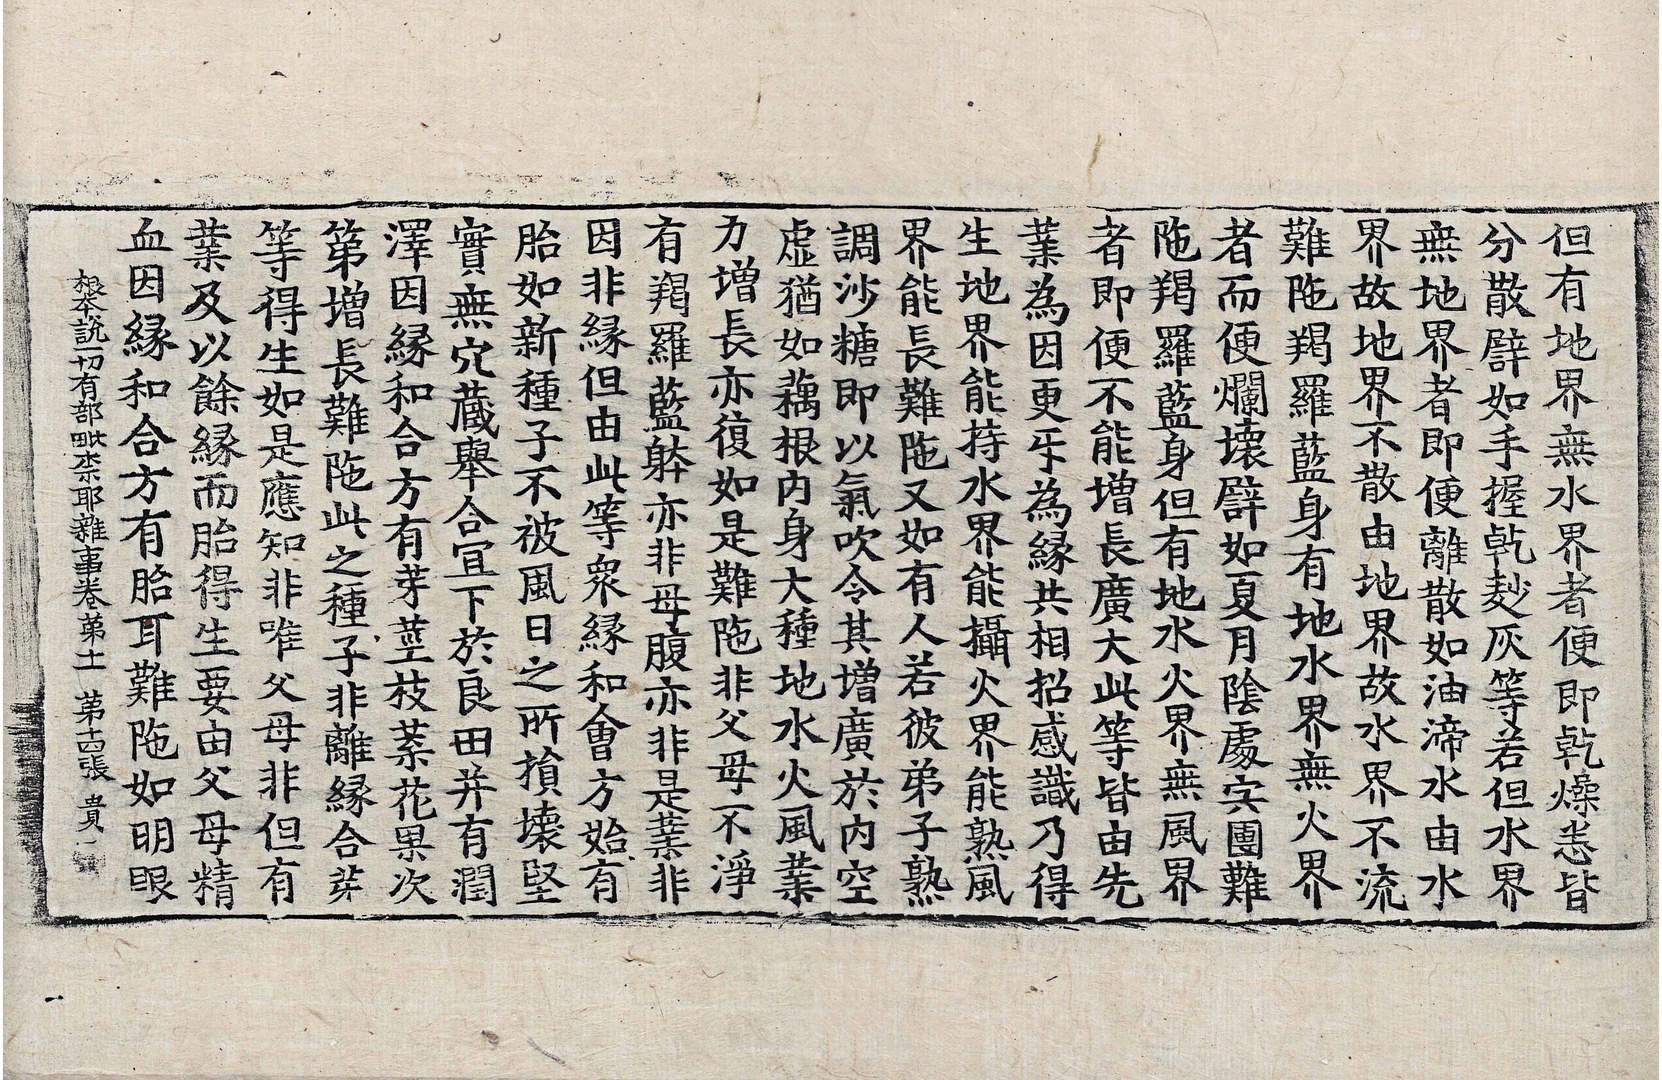 但有地界無水界者便即乾燥悉皆
分散譬如手握乾麨灰等若但水界
無地界者即便離散如油渧水由水
界故地界不散由地界故水界不流
難陁羯羅藍身有地水界無火界
者而便爛壞譬如夏月陰處宍團難
陁羯羅藍身但有地水火界無風界
者即便不能增長廣大此等皆由先
業為因更𤓰為緣共相招感識乃得
生地界能持水界能攝火界能熟風
界能長難陁又如有人若彼弟子熟
調沙糖即以氣吹令其增廣於內空
虛猶如藕根內身大種地水火風業
力增長亦復如是難陁非父母不淨
有羯羅藍躰亦非母腹亦非是業非
因非緣但由此等眾緣和會方始有
胎如新種子不被風日之所損壞堅
實無穴藏舉合宜下於良田并有潤
澤因緣和合方有芽莖枝葉花果次
第增長難陁此之種子非離緣合芽
等得生如是應知非唯父母非但有
業及以餘緣而胎得生要由父母精
血因緣和合方有胎耳難陁如明眼
根本說一切有部毗柰耶雜事卷第十一 第十四張 貴